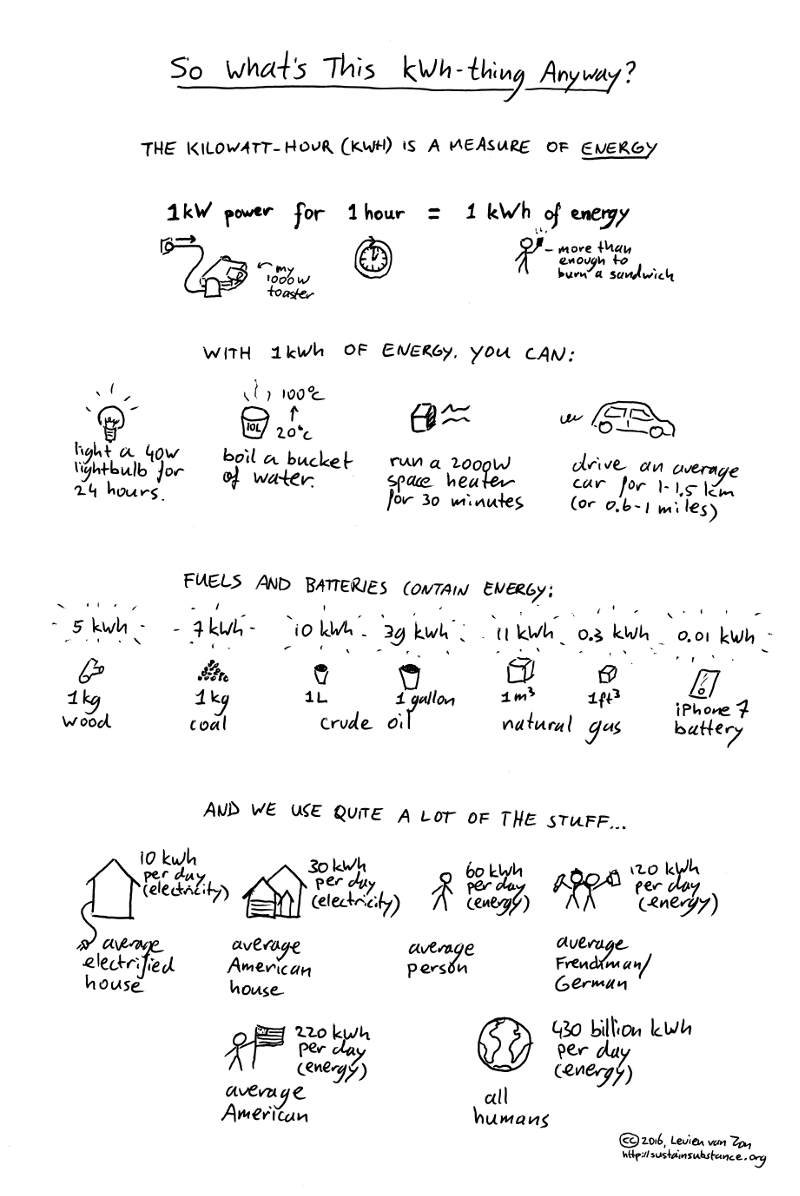 So What's This kWh-thing Anyway?
THE KILOWATT-HOUR (KWH) IS A MEASURE OF ENERGY
1kW power for 1 hour = 1 kWh of energy
my
1000W
toaster
more than
enough to
burn a sandwich
WITH 1kWh OF ENERGY, YOU CAN:
light a 40W
lightbulb for
24 hours.
100°C
10L
20°C
boil a bucket
of water.
run a 2000W
space heater
for 30 minutes
drive an average
car for 1-1.5 km
(or 0.6-1 miles)
FUELS AND BATTERIES CONTAIN ENERGY:
5 kWh
1kg
wood
7 kWh
1kg
coal
10 kWh
1L
39 kWh
1 gallon
crude oil
11 kWh
1m³
0.3 kWh
1ft³
natural gas
0.01 kWh
iPhone 7
battery
AND WE USE QUITE A LOT OF THE STUFF...
10 kWh
per day
(electricity)
average
electrified
house
30 kWh
per day
(electricity)
average
American
house
60 kWh
per day
(energy)
average
person
120 kWh
per day
(energy)
average
Frenchman/
German
220 kWh
per day
(energy)
average
American
430 billion kWh
per day
(energy)
all
humans
(cc) 2016, Levien van Zon
http://sustainsubstance.org